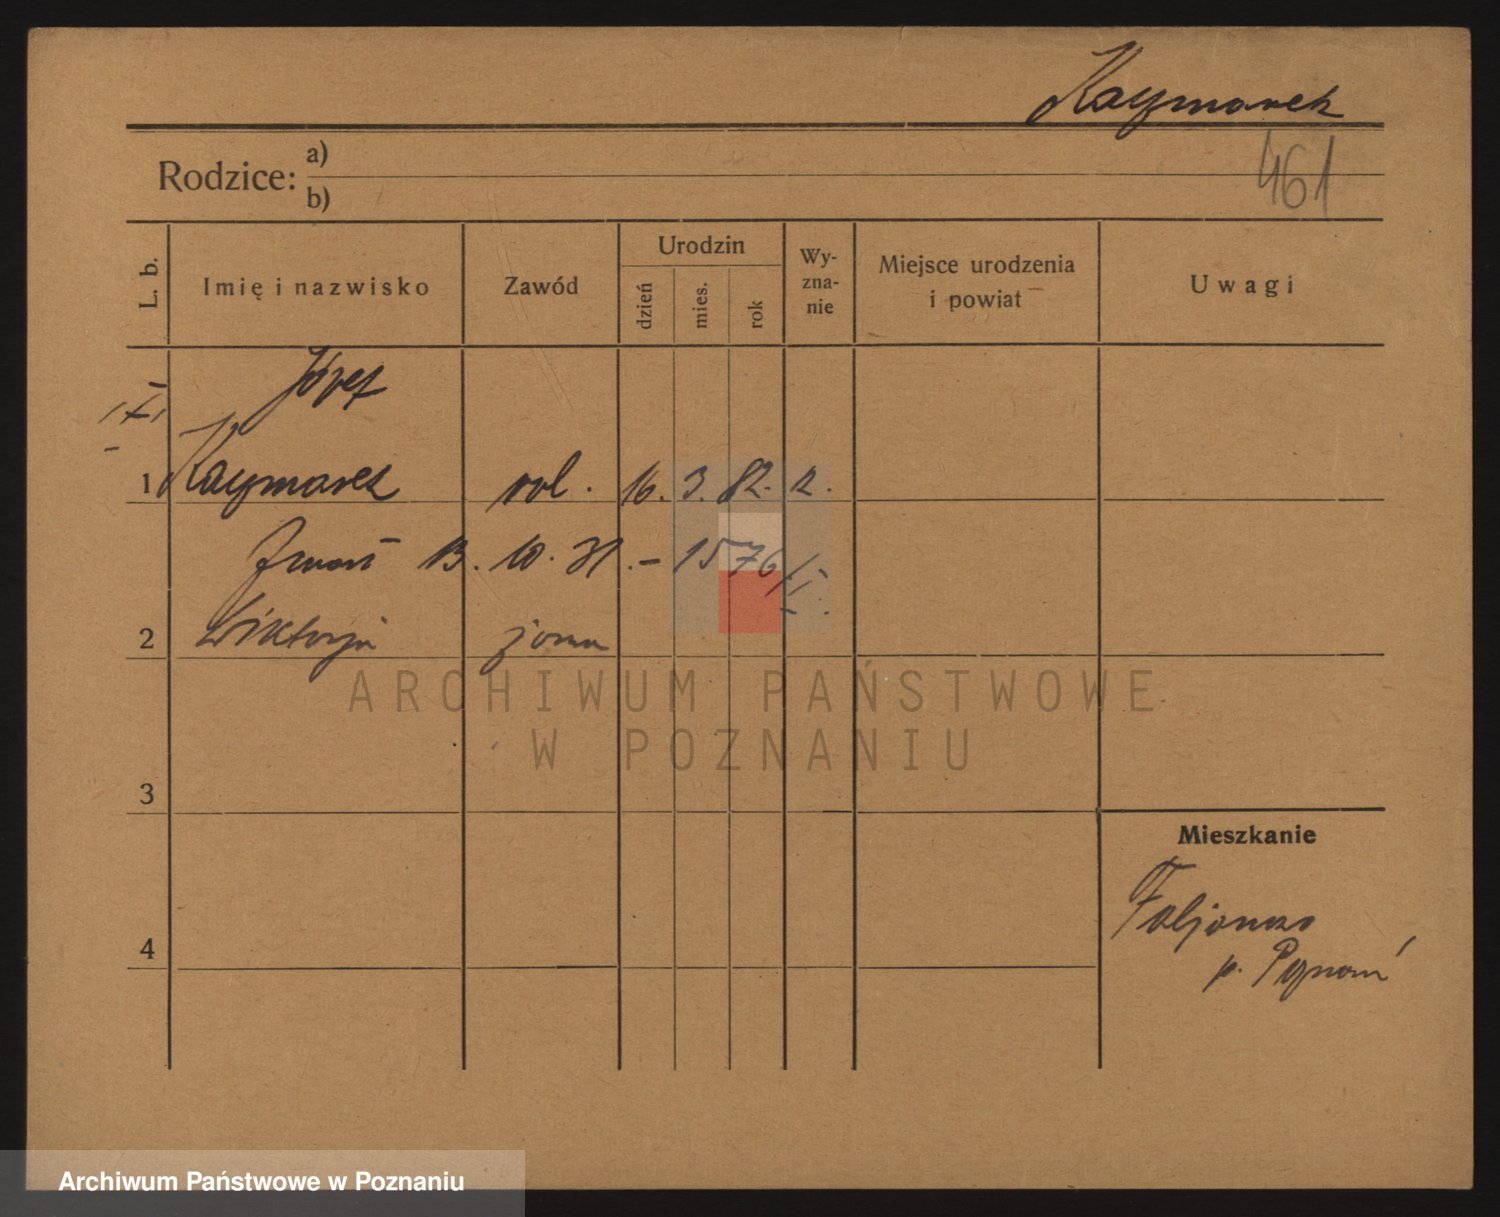 Kaczmarek
461
Rodzice: a)
b)
L. b.
Imię i nazwisko
Zawód
Urodzin
dzień
mies.
rok
Wy-
zna-
nie
Miejsce urodzenia
i powiat
Uwagi
Józef
1 Kaczmarek rol. 16. 3. 82. k.
Zmarł 13. 10. 31. – 1576/I.
2 Wiktorja żona
ARCHIWUM PAŃSTWOWE
W POZNANIU
3
Mieszkanie
p. Poznań
4
Archiwum Państwowe w Poznaniu